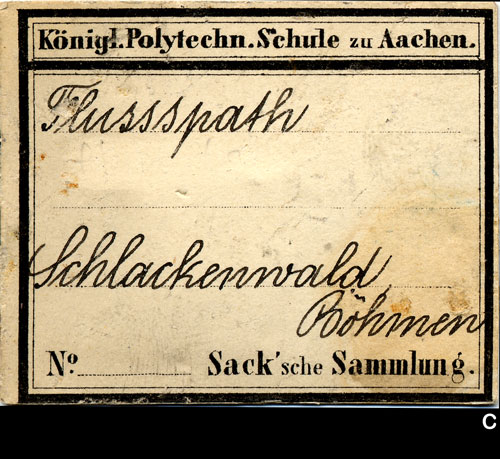 Königl. Polytechn. Schule zu Aachen.
Flussspath
Schlackenwald
Böhmen
No. Sack'sche Sammlung.
C